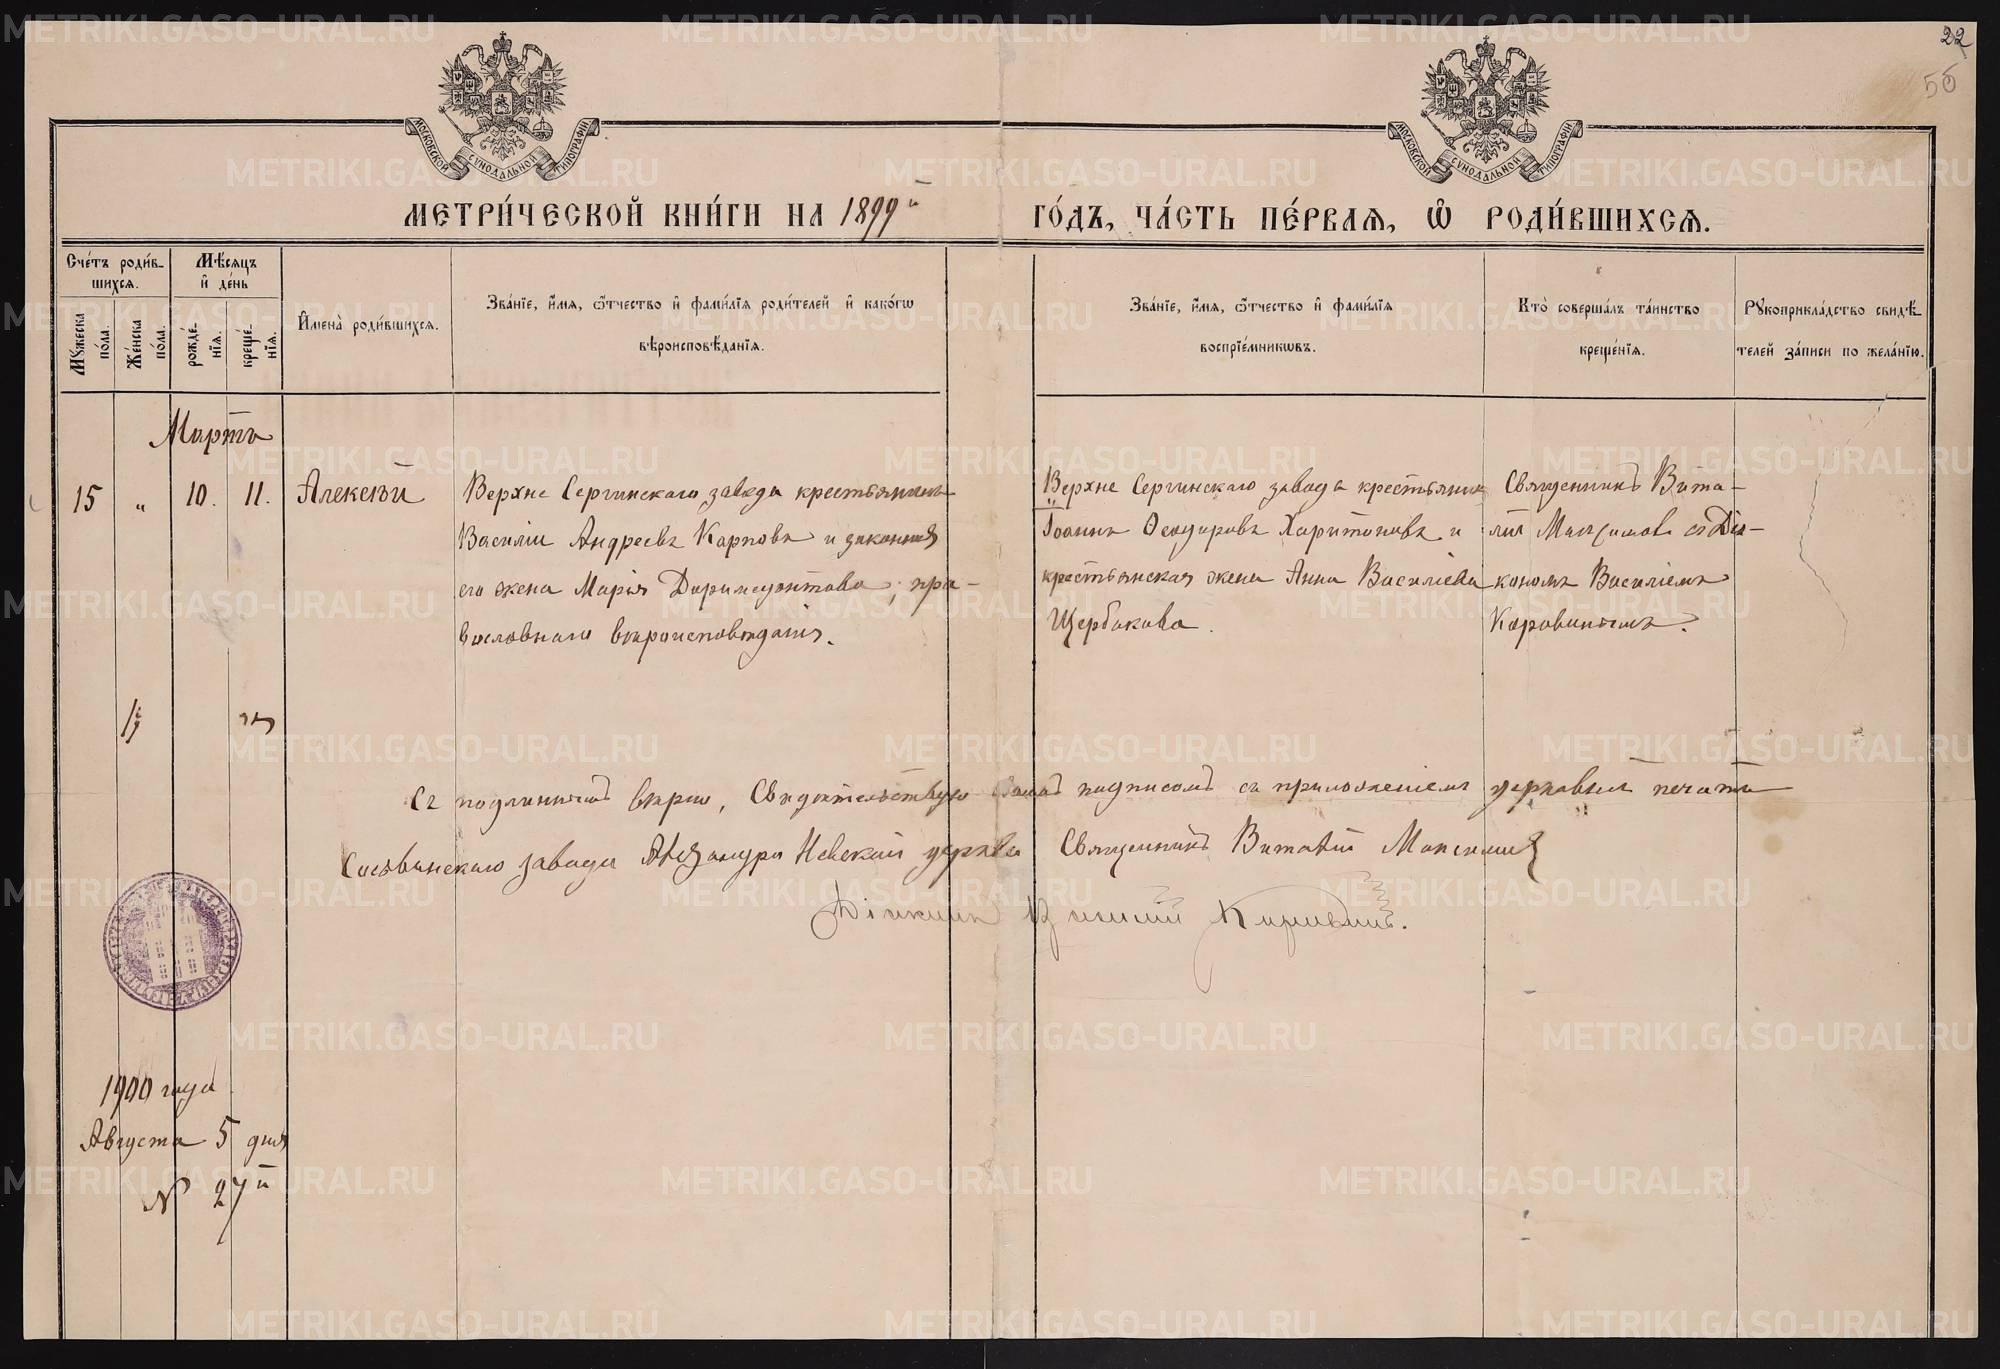 22
56
МОСКОВСКОЙ СѴНОДАЛЬНОЙ ТИПОГРАФІИ
МОСКОВСКОЙ СѴНОДАЛЬНОЙ ТИПОГРАФІИ
МЕТРИ́ЧЕСКОЙ КНИ́ГИ НА 1899й ГО́ДЪ, ЧА́СТЬ ПЕ́РВАѦ, Ѽ РОДИ́ВШИХСѦ.
Сче́тъ роди́в-
шихсѧ.
Мѣ́сѧцъ
и҆ де́нь
Мꙋ́жеска
по́ла.
Же́нска
по́ла.
рожде́-
нїѧ.
креще́-
нїѧ.
И҆мена̀ роди́вшихсѧ.
Зва́нїе, и҆́мѧ, ѻ҆́тчество и҆ фами́лїѧ роди́телей и҆ како́гѡ
вѣроисповѣ́данїѧ.
Зва́нїе, и҆́мѧ, ѻ҆́тчество и҆ фами́лїѧ
воспрїе́мникѡвъ.
Кто̀ соверша́лъ та́инство
креще́нїѧ.
Рꙋкоприкла́дство свидѣ́-
телей за́писи по жела́нїю.
Мартъ
15 „ 10. 11. Алексѣй
Верхне Сергинскаго завода крестьянинъ
Василій Андреевъ Карповъ и законная
его жена Марія Доримедонтова; пра-
вославнаго вѣроисповѣданія.
Верхне Сергинскаго завода крестьянинъ
Іоаннъ Ѳеодоровъ Харитоновъ и
крестьянская жена Анна Васильева
Щербакова.
Священникъ Вита-
лій Максимовъ съ Діа-
кономъ Василіемъ
Коровинымъ.
Съ подлиннымъ вѣрно, Свидѣтельствую подписомъ съ приложеніемъ церковной печати
Сосьвинскаго завода Александро Невской церкви Священникъ Виталій Максимовъ
Діаконъ Василій Коровинъ.
1900 года
Августа 5 дня
№ 27й
METRIKI.GASO-URAL.RU